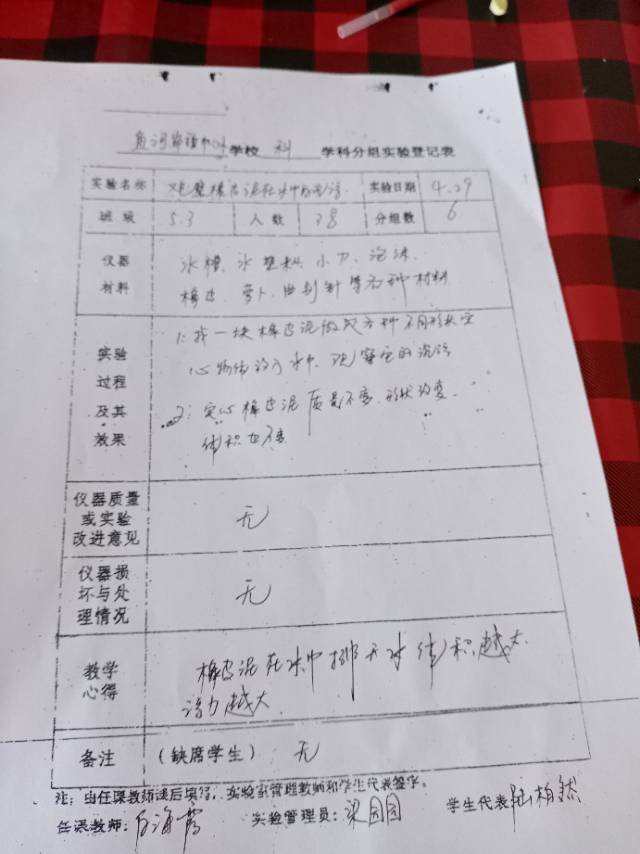 学校 科 学科分组实验登记表
实验名称 观察橡皮泥在水中的沉浮 实验日期 4.29
班级 5.3 人数 38 分组数 6
仪器材料 水槽、水 塑料、小刀、泡沫
橡皮、萝卜、回别针等各种材料
实验过程及其效果 1: 找一块橡皮泥做成各种不同形状实
心物体放入水中,观察它的沉浮
2: 实心橡皮泥质量不变,形状改变,
体积也不变
仪器质量或实验改进意见 无
仪器损坏与处理情况 无
教学心得 橡皮泥在水中排开水体积越大
浮力越大
备注 (缺席学生) 无
注:由任课教师课后填写,实验室管理教师和学生代表签字。
任课教师: 海霞 实验管理员:梁园园 学生代表 陆柏然